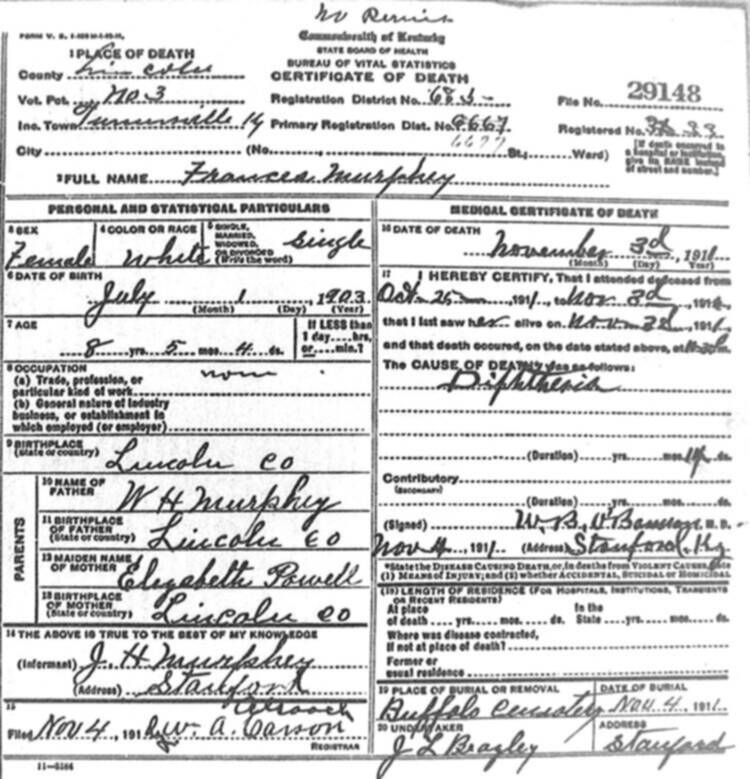 No Permit
FORM V. S.
Commonwealth of Kentucky
STATE BOARD OF HEALTH
BUREAU OF VITAL STATISTICS
CERTIFICATE OF DEATH
1 PLACE OF DEATH
County Lincoln
Vot. Pct. No 3
Inc. Town Turnersville Ky
City (No. St.; Ward)
Registration District No. 685
Primary Registration Dist. No. 6677
File No. 29148
Registered No.
[If death occurred in a hospital or institution, give its NAME instead of street and number.]
2 FULL NAME Frances Murphey
PERSONAL AND STATISTICAL PARTICULARS
3 SEX Female
4 COLOR OR RACE White
5 SINGLE, MARRIED, WIDOWED, OR DIVORCED (Write the word) Single
6 DATE OF BIRTH
July 1 1903
(Month) (Day) (Year)
7 AGE
8 yrs. 5 mos. 4 ds.
If LESS than 1 day....hrs, or....min.?
8 OCCUPATION
(a) Trade, profession, or particular kind of work none
(b) General nature of industry business, or establishment in which employed (or employer)
9 BIRTHPLACE
(State or country) Lincoln Co
PARENTS
10 NAME OF FATHER W H Murphey
11 BIRTHPLACE OF FATHER (State or country) Lincoln Co
12 MAIDEN NAME OF MOTHER Elizabeth Powell
13 BIRTHPLACE OF MOTHER (State or country) Lincoln Co
14 THE ABOVE IS TRUE TO THE BEST OF MY KNOWLEDGE
(Informant) J. H. Murphey
(Address) Stanford
15
Filed Nov 4, 191 W. A. Carson
REGISTRAR
11-3184
MEDICAL CERTIFICATE OF DEATH
16 DATE OF DEATH
November 3d, 1911
(Month) (Day) (Year)
17 I HEREBY CERTIFY, That I attended deceased from
Oct 25, 1911, to Nov 3d, 191
that I last saw her alive on Nov 3d, 1911,
and that death occured, on the date stated above, at
The CAUSE OF DEATH was as follows:
Diphtheria
(Duration) yrs. mos. 14 ds.
Contributory
(SECONDARY)
(Duration) yrs. mos. ds.
(Signed) W. B. O'Bannon M. D.
Nov 4, 1911 (Address) Stanford, Ky
*State the DISEASE CAUSING DEATH, or, in deaths from VIOLENT CAUSES, state
(1) MEANS OF INJURY; and (2) whether ACCIDENTAL, SUICIDAL or HOMICIDAL
18 LENGTH OF RESIDENCE (FOR HOSPITALS, INSTITUTIONS, TRANSIENTS OR RECENT RESIDENTS)
At place of death yrs. mos. ds. In the State yrs. mos. ds.
Where was disease contracted,
If not at place of death?
Former or
usual residence
19 PLACE OF BURIAL OR REMOVAL Buffalo Cemetery
DATE OF BURIAL Nov. 4 1911
20 UNDERTAKER J L Beazley
ADDRESS Stanford